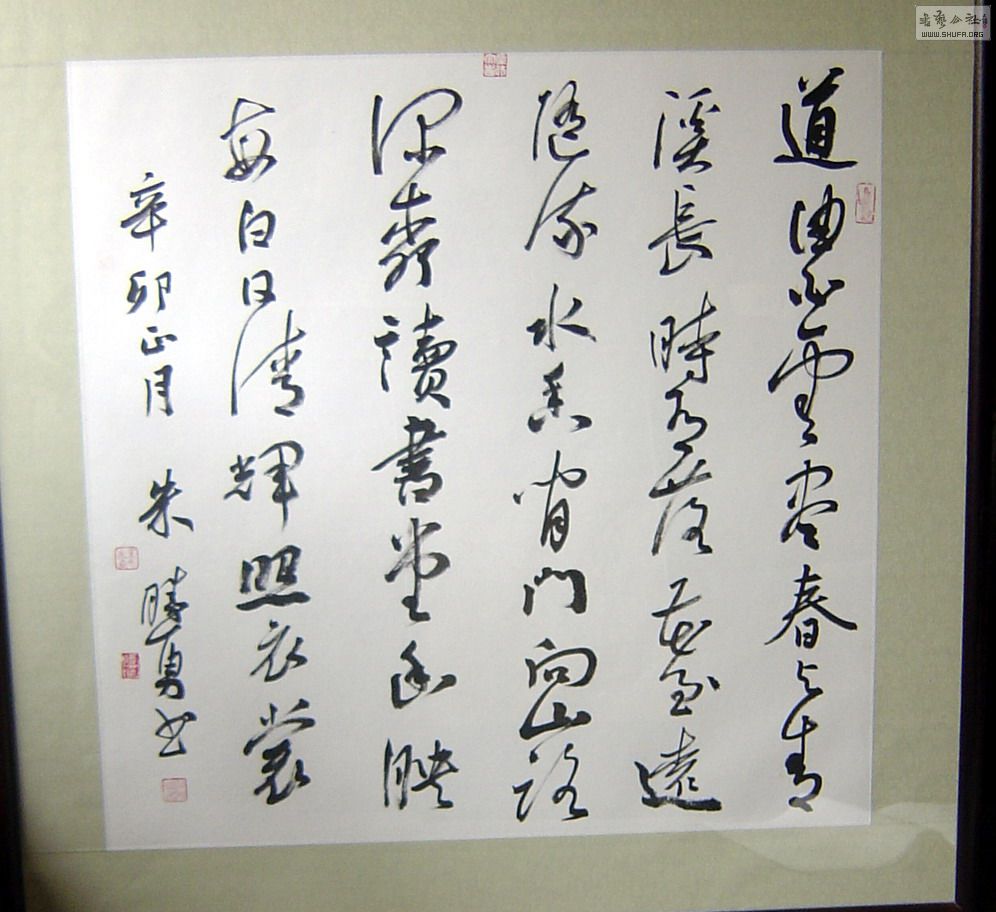 道由白雲盡春与青
溪長時有落花至遠
隨流水香閒門向山路
深柳讀書堂幽映
每白日清輝照衣裳
辛卯正月 朱勝勇书
書藝公社
WWW.SHUFA.ORG